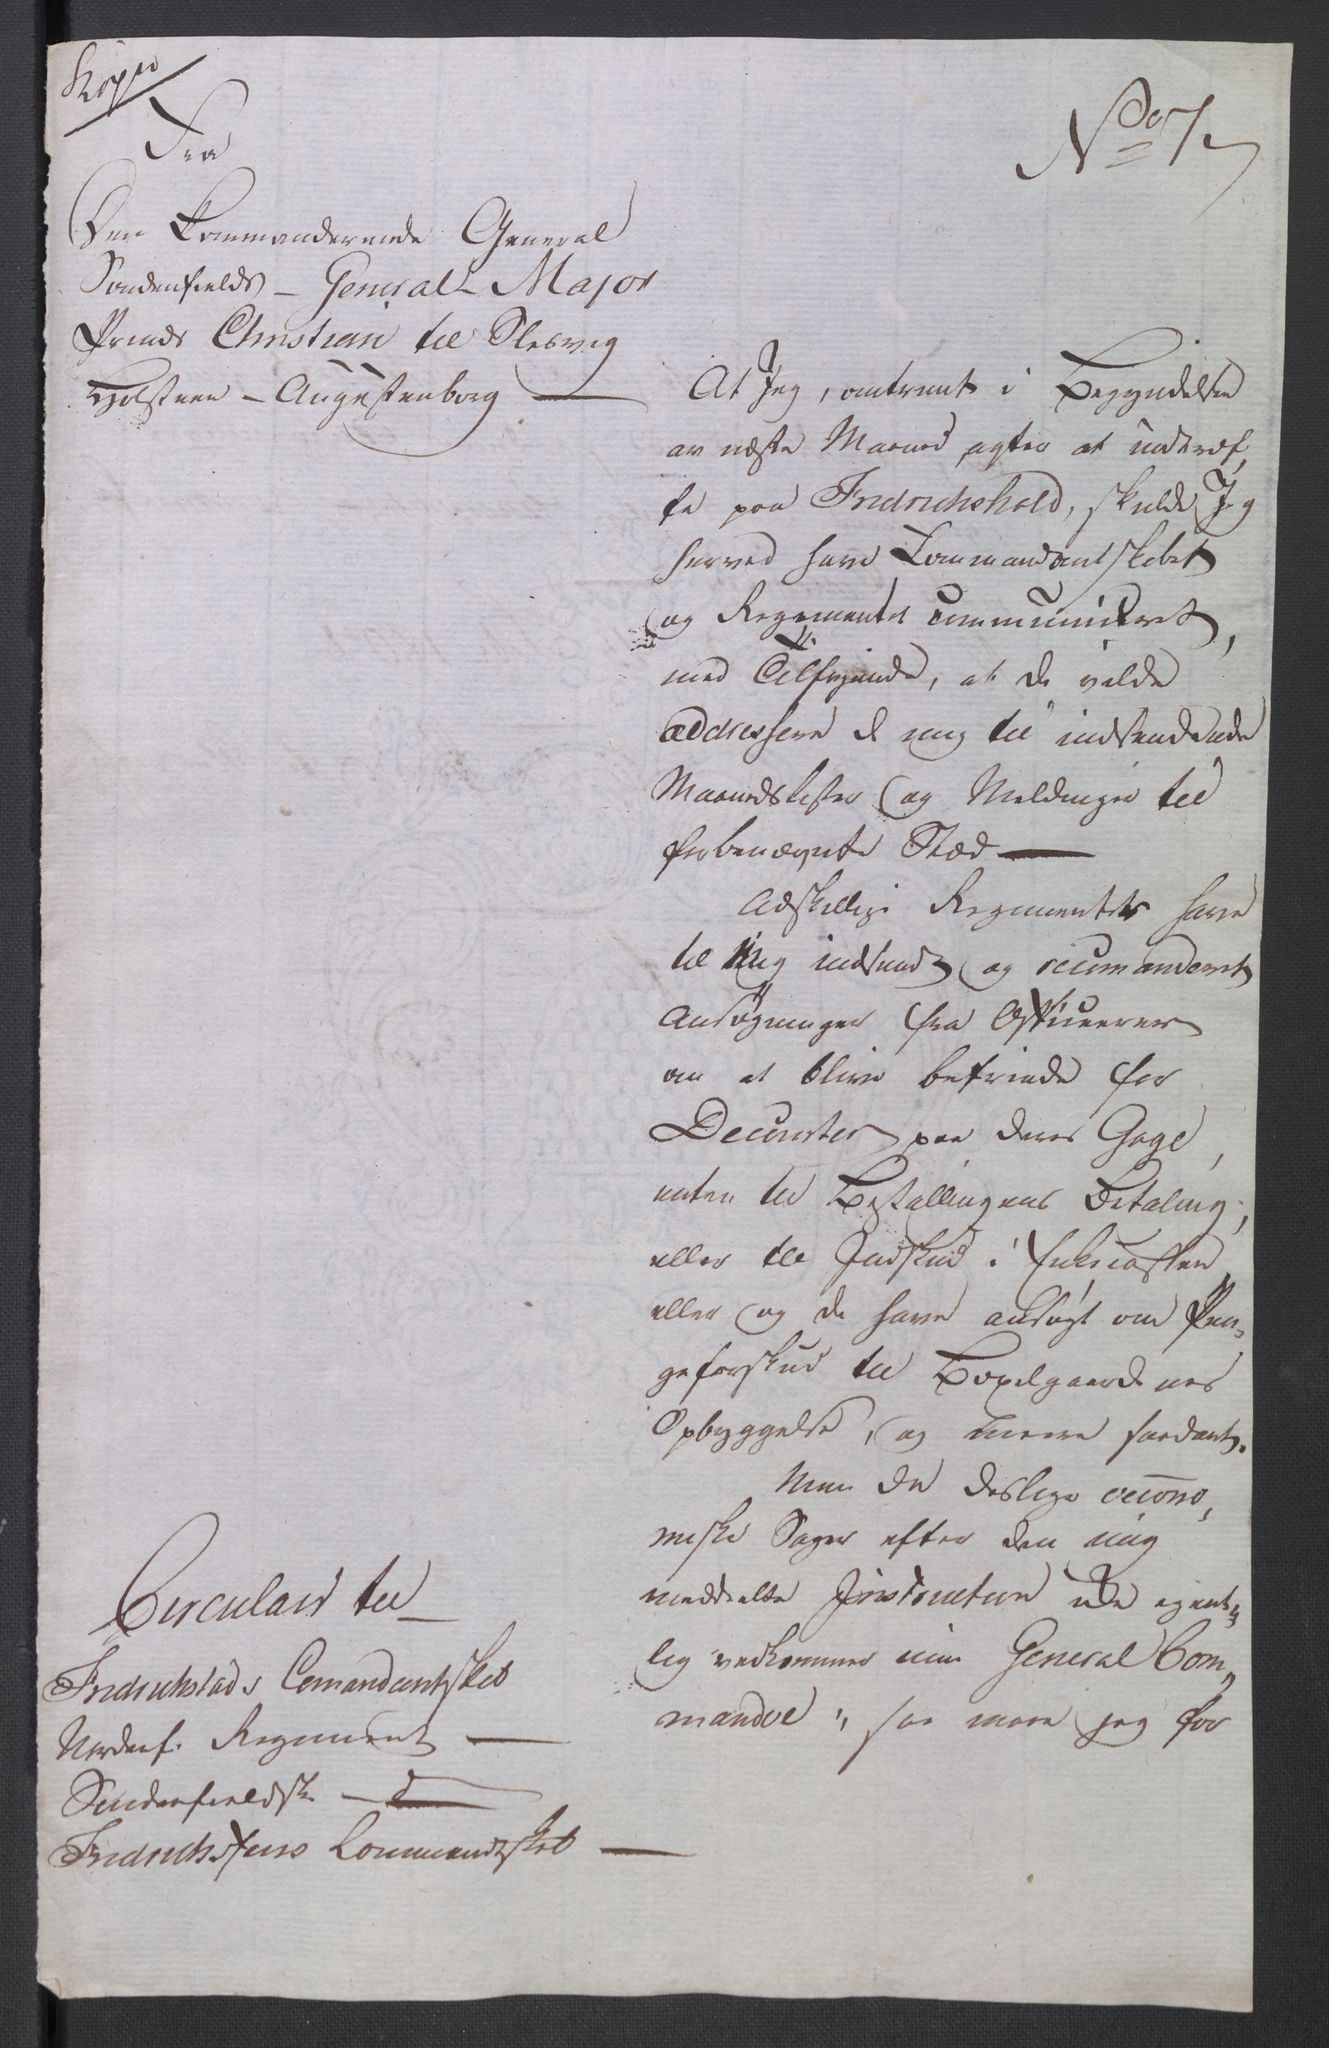 Kopie
No 7
Fra
Den Kommanderende General
Søndenfields – General-Major
Prinds Christian til Slesvig
Holsteen – Augustenborg —
At Jeg, omtrent i Begyndelsen
av næste Maaned agter at indtref,
fe paa Fridrichshald, skulde Jeg
herved have Commandantskabet
og Regimentet communiceret,
med Tilføjende, at de vilde
addressere de mig til indsendende
Maanedslister og Meldinger til
forbenævnte Stæd —
Adskillige Regimenter have
til Mig indsendt og recomanderet
Ansøgninger fra Officeerer
om at blive befriede for
Decourter paa deres Gage,
enten til Bestallingens Betaling,
eller til Indskud i Enkecassen
eller og de have ansøgt om Pen,,
geforskud til Boxelgaardenes
Opbyggelse, og meere saadant.
Men da deslige oecono,
miske Sager efter den mig
meddeelte Instruction ikke egent,,
lig vedkommer min General Com,,
mandoe, saa maa jeg for
Circulair til
Fridrichstads Comandantskab
Nordenf. Regiment —
Søndenfieldsk — d —
Fridrichsteens Commandskab —